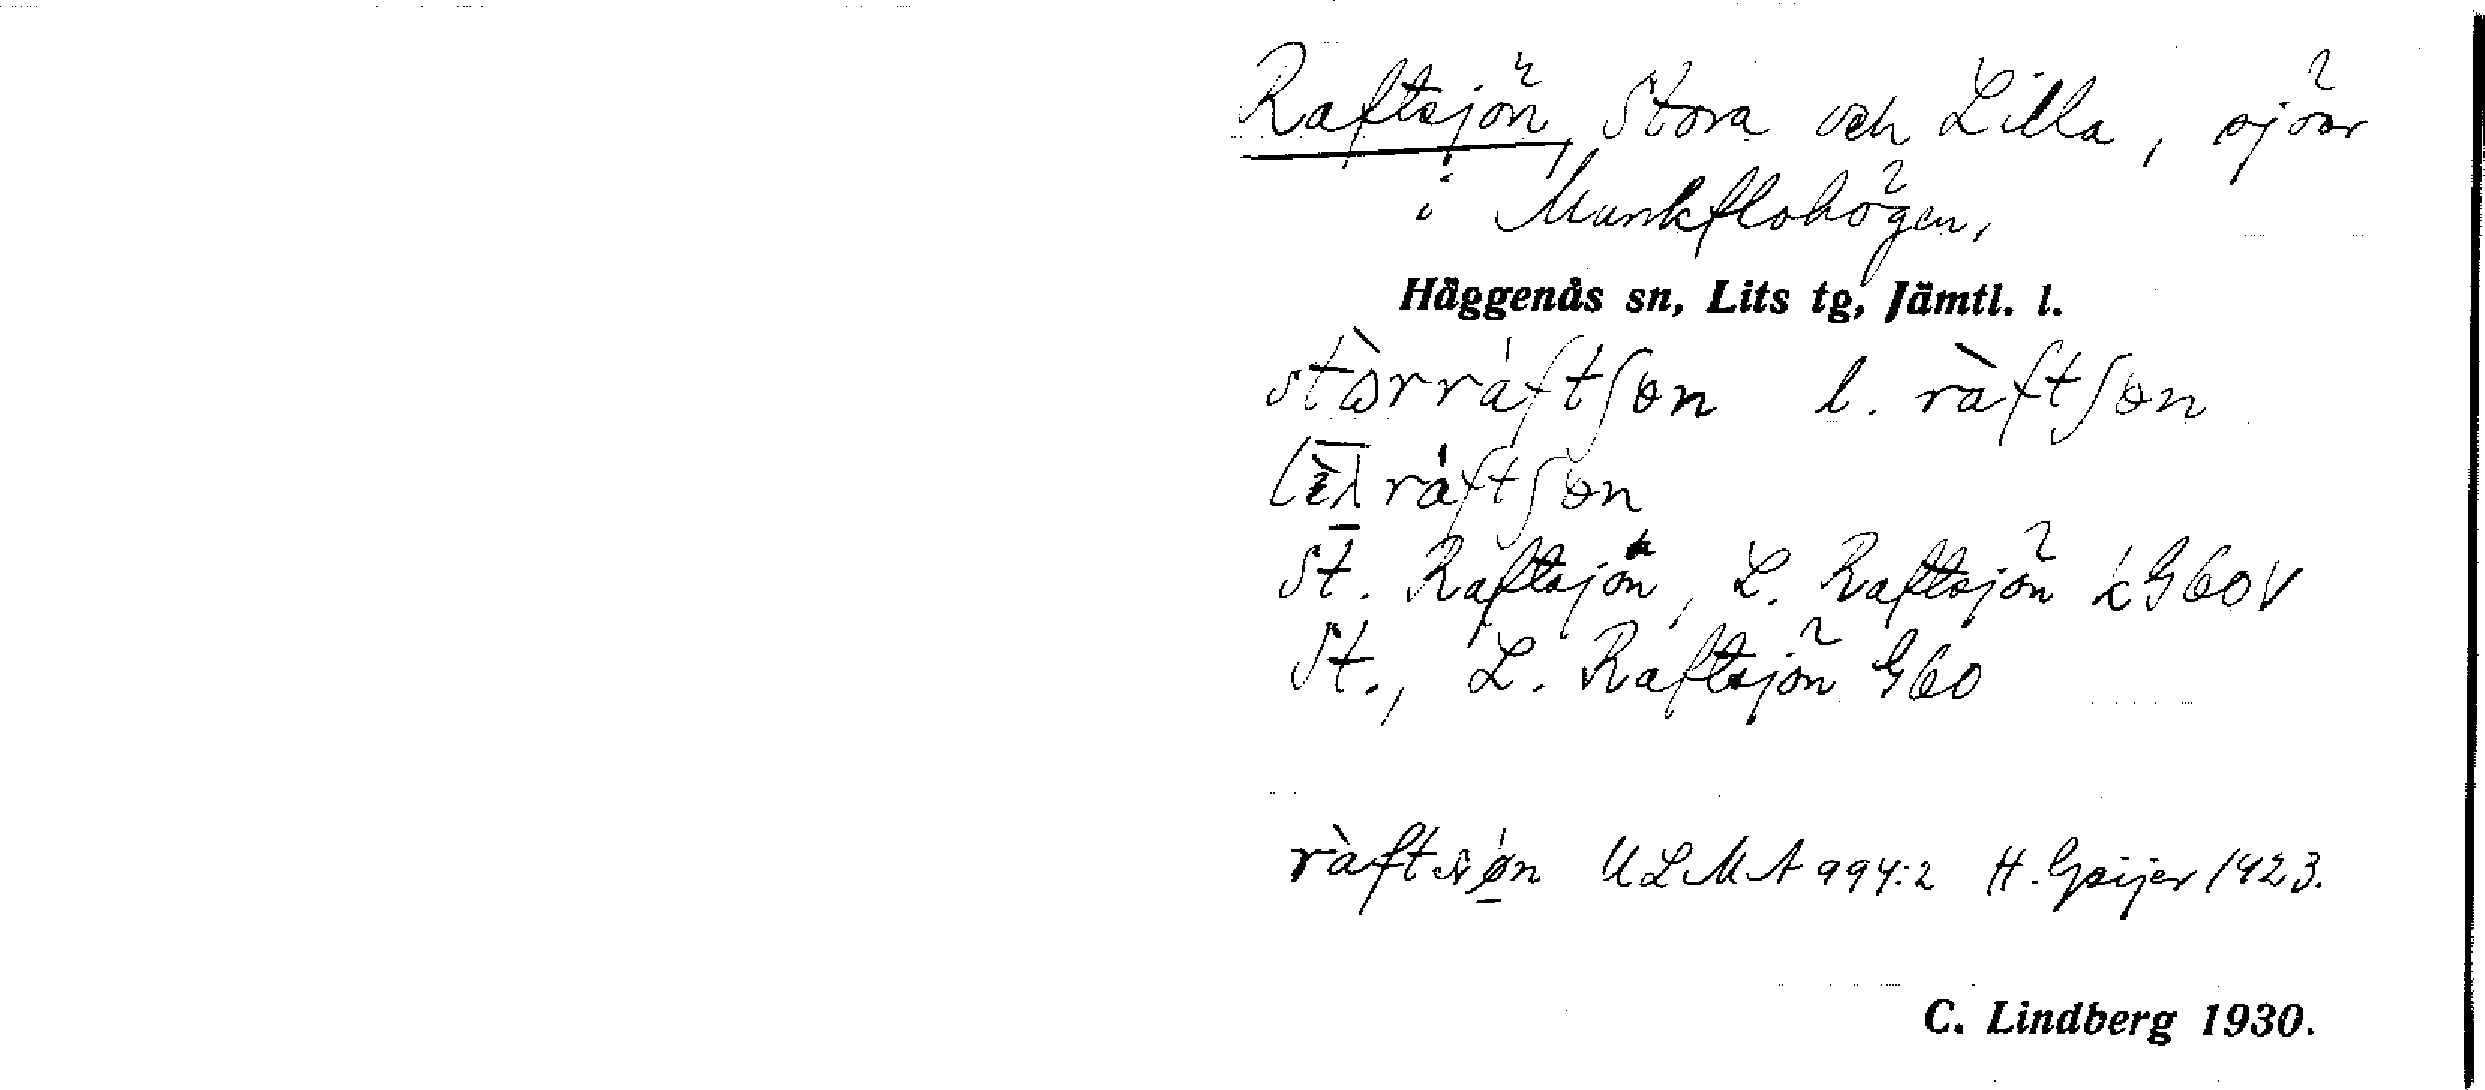 Raftsjön, Stora och Lilla, sjöar
i Munkflohögen,
Häggenås sn, Lits tg, Jämtl. l.
stòrráftʃɵn l. ràftʃɵn
ráftʃɵn
St. Raftsjön, L. Raftsjön G60V
St., L. Raftsjön G60
ràftsøn ULMA 994:2 H. Geijer 1923.
C. Lindberg 1930.